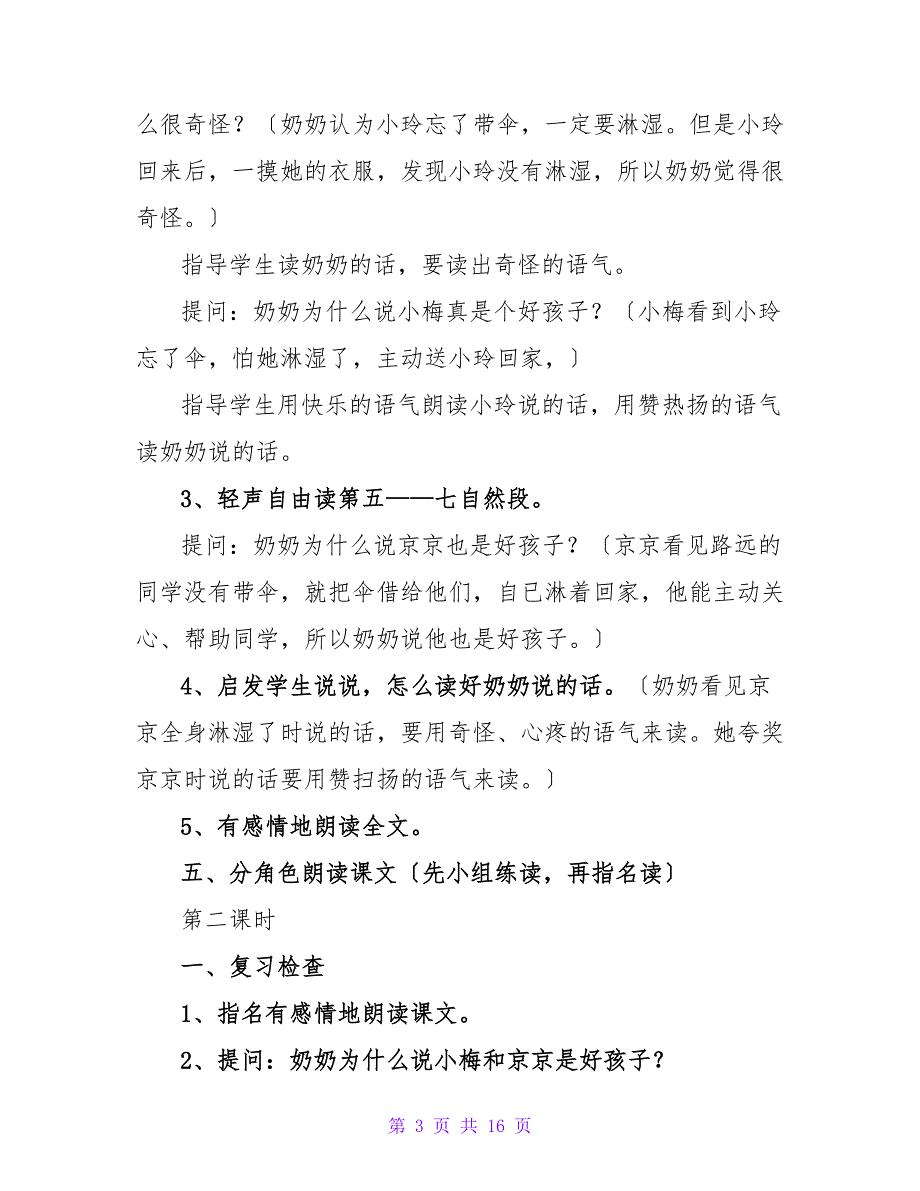 么很奇怪？〔奶奶认为小玲忘了带伞，一定要淋湿。但是小玲
回来后，一摸她的衣服，发现小玲没有淋湿，所以奶奶觉得很
奇怪。〕
指导学生读奶奶的话，要读出奇怪的语气。
提问：奶奶为什么说小梅真是个好孩子？〔小梅看到小玲
忘了伞，怕她淋湿了，主动送小玲回家，〕
指导学生用快乐的语气朗读小玲说的话，用赞热扬的语气
读奶奶说的话。
3、轻声自由读第五——七自然段。
提问：奶奶为什么说京京也是好孩子？〔京京看见路远的
同学没有带伞，就把伞借给他们，自已淋着回家，他能主动关
心、帮助同学，所以奶奶说他也是好孩子。〕
4、启发学生说说，怎么读好奶奶说的话。〔奶奶看见京
京全身淋湿了时说的话，要用奇怪、心疼的语气来读。她夸奖
京京时说的话要用赞扫扬的语气来读。〕
5、有感情地朗读全文。
五、分角色朗读课文〔先小组练读，再指名读〕
第二课时
一、复习检查
1、指名有感情地朗读课文。
2、提问：奶奶为什么说小梅和京京是好孩子？
第 3 页 共 16 页